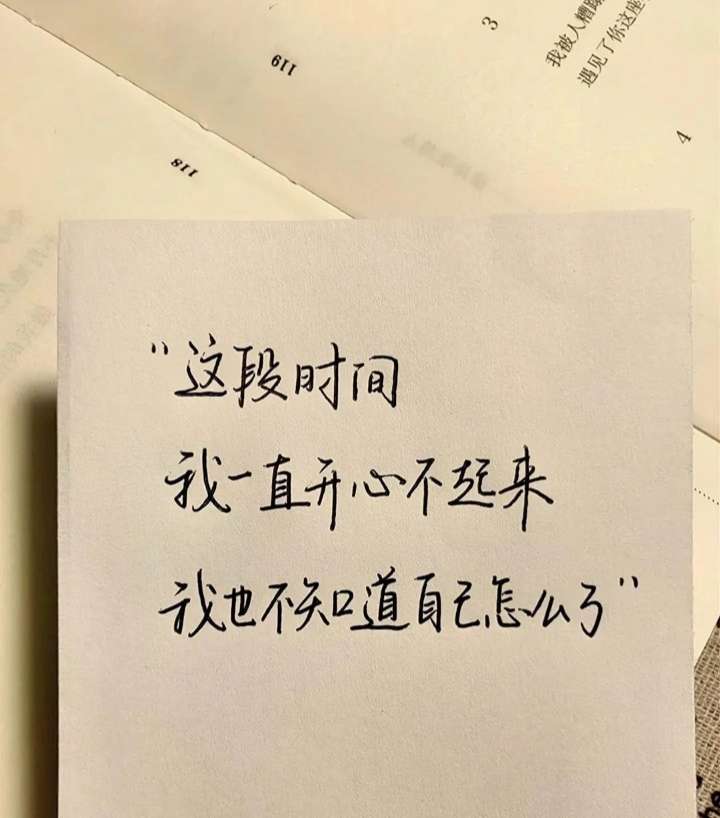 3
我被人糟蹋
遇见了你这座
119
4
118
"这段时间
我一直开心不起来
我也不知道自己怎么了"